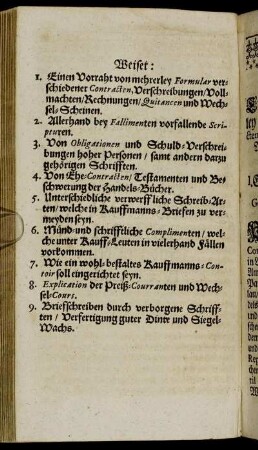 Weiset:
1. Einen Vorraht von mehrerley Formular ver-
schiedener Contracten, Verschreibungen/Voll-
machten/Rechnungen/Quitancen und Wech-
sel-Scheinen.
2. Allerhand bey Fallimenten vorfallende Scri-
pturen.
3. Von Obligationen und Schuld-Verschrei-
bungen hoher Personen/ samt andern darzu
gehörigen Schrifften.
4. Von Ehe-Contracten/ Testamenten und Be-
schwerung der Handels-Bücher.
5. Unterschiedliche verwerffliche Schreib-Ar-
ten/welche in Kauffmanns-Briefen zu ver-
meyden seyn.
6. Münd-und schrifftliche Complimenten/ wel-
che unter Kauff-Leuten in vielerhand Fällen
vorkommen.
7. Wie ein wohl-bestaltes Kauffmanns-Con-
toir soll eingerichtet seyn.
8. Explication der Preiß-Couranten und Wech-
sel-Cours.
9. Briefschreiben durch verborgene Schriff-
ten / Verfertigung guter Dinte und Siegel-
Wachs.